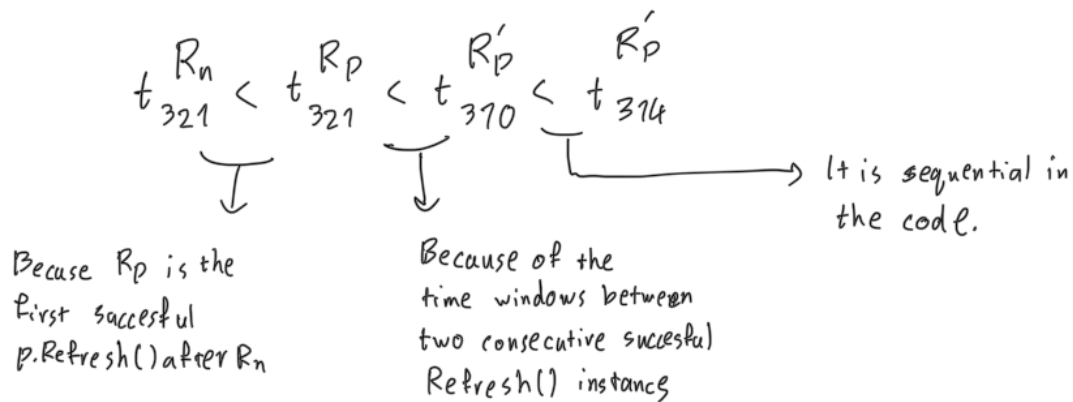 t_{321}^{R_n} < t_{321}^{R_p} < t_{310}^{R'_p} < t_{314}^{R'_p}
It is sequential in
the code.
Becuse Rp is the
first saccesful
p.Refresh() after Rn
Because of the
time windows between
two consecutive succesful
Refresh() instancs